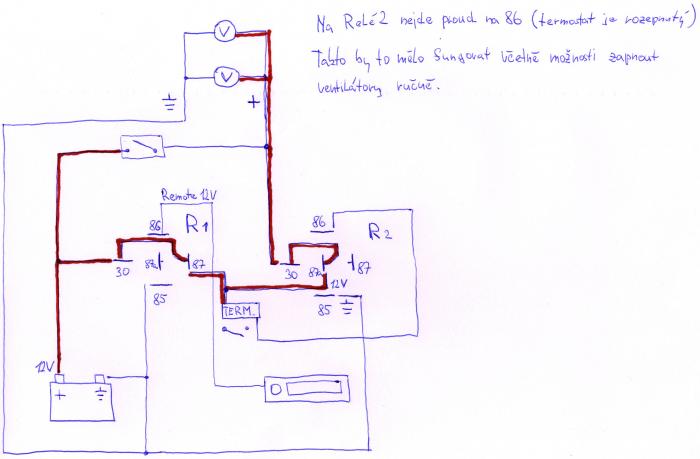 Na Relé 2 nejde proud na 86 (termostat je rozepnutý)
Takto by to mělo fungovat včetně možnosti zapnout
ventilátory ručně.
V
V
+
Remote 12V
86
R1
30
87a
87
85
86
R2
30
87a
87
12V
85
TERM.
12V
+